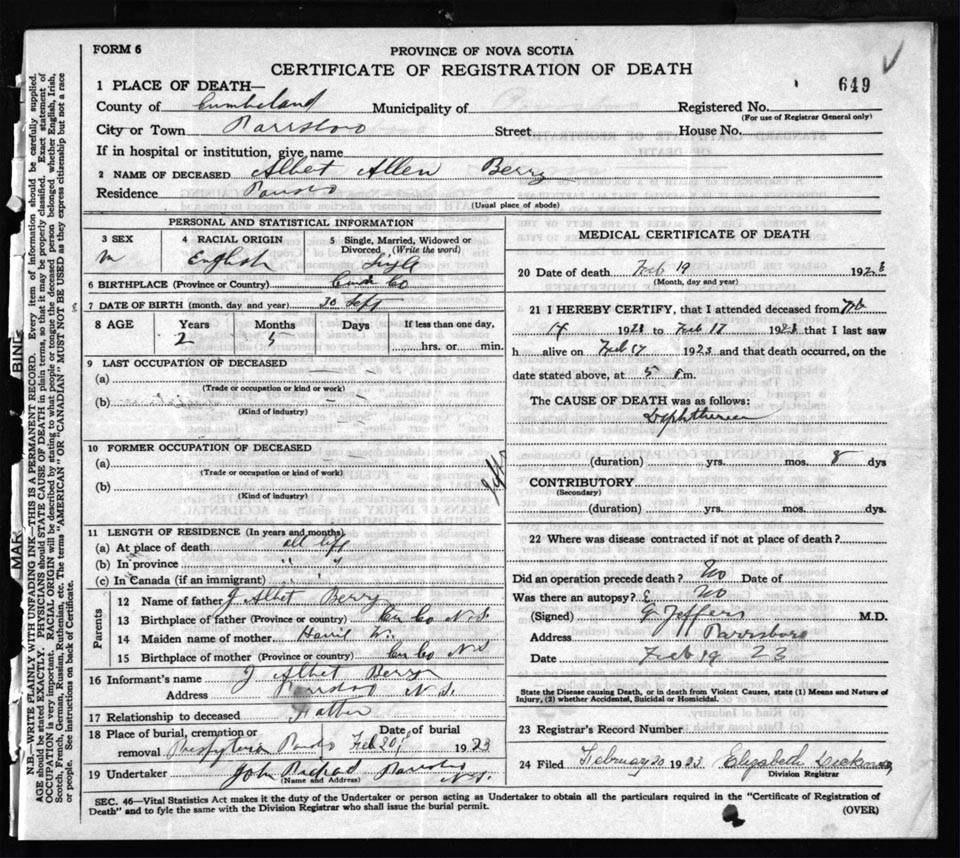 FORM 6
PROVINCE OF NOVA SCOTIA
CERTIFICATE OF REGISTRATION OF DEATH
649
1 PLACE OF DEATH—
County of Cumbeland Municipality of Registered No.
(For use of Registrar General only)
City or Town Parrsboro Street House No.
If in hospital or institution, give name
2 NAME OF DECEASED Albet Allen Berry
Residence Parrsboro
(Usual place of abode)
PERSONAL AND STATISTICAL INFORMATION
3 SEX 4 RACIAL ORIGIN 5 Single, Married, Widowed or Divorced. (Write the word)
M English Single
6 BIRTHPLACE (Province or Country) Cum Co
7 DATE OF BIRTH (month, day and year) 30 Sept
8 AGE Years Months Days If less than one day,
2 5 hrs. or min.
9 LAST OCCUPATION OF DECEASED
(a)
(Trade or occupation or kind or work)
(b)
(Kind of industry)
10 FORMER OCCUPATION OF DECEASED
(a)
(Trade or occupation or kind or work)
(b)
(Kind of industry)
11 LENGTH OF RESIDENCE (In years and months)
(a) At place of death all life
(b) In province " "
(c) In Canada (if an immigrant) " "
Parents
12 Name of father J Albet Berry
13 Birthplace of father (Province or country) Cum Co N.S
14 Maiden name of mother W.
15 Birthplace of mother (Province or country) Cum Co N S
16 Informant's name J Albet Berry
Address Parrsboro N.S.
17 Relationship to deceased Father
18 Place of burial, cremation or removal Presbyterian Parrsboro Date of burial Feb 20 1923
19 Undertaker John Parrsboro N.S.
(Name and Address)
MEDICAL CERTIFICATE OF DEATH
20 Date of death Feb 19 192
(Month, day and year)
21 I HEREBY CERTIFY, that I attended deceased from Feb
14 1923 to Feb 17 1923 that I last saw
h alive on Feb 17 1923 and that death occurred, on the
date stated above, at 5 P m.
The CAUSE OF DEATH was as follows:
Diphtheria
(duration) yrs. mos. 8 dys
CONTRIBUTORY
(Secondary)
(duration) yrs. mos. dys.
22 Where was disease contracted if not at place of death?
Did an operation precede death? No Date of
Was there an autopsy? No
(Signed) G Jeffers M.D.
Address Parrsboro
Date Feb 19 23
State the Disease causing Death, or in death from Violent Causes, state (1) Means and Nature of Injury, (2) whether Accidental, Suicidal or Homicidal.
23 Registrar's Record Number
24 Filed February 20 1923 Elizabeth
Division Registrar
SEC. 46—Vital Statistics Act makes it the duty of the Undertaker or person acting as Undertaker to obtain all the particulars required in the "Certificate of Registration of
Death" and to fyle the same with the Division Registrar who shall issue the burial permit.
(OVER)
MAR BING
N.B.—WRITE PLAINLY WITH UNFADING INK—THIS IS A PERMANENT RECORD. Every item of information should be carefully supplied.
AGE should be stated EXACTLY. PHYSICIANS should STATE CAUSE OF DEATH in plain terms, so that it may be properly classified. Exact statement of
OCCUPATION is very important. RACIAL ORIGIN will be described by stating to what people or tongue the deceased person belonged whether English, Irish,
Scotch, French, German, Russian, Ruthenian, etc. The terms "AMERICAN" OR "CANADIAN" MUST NOT BE USED as they express citizenship but not a race
or people. See instructions on back of Certificate.